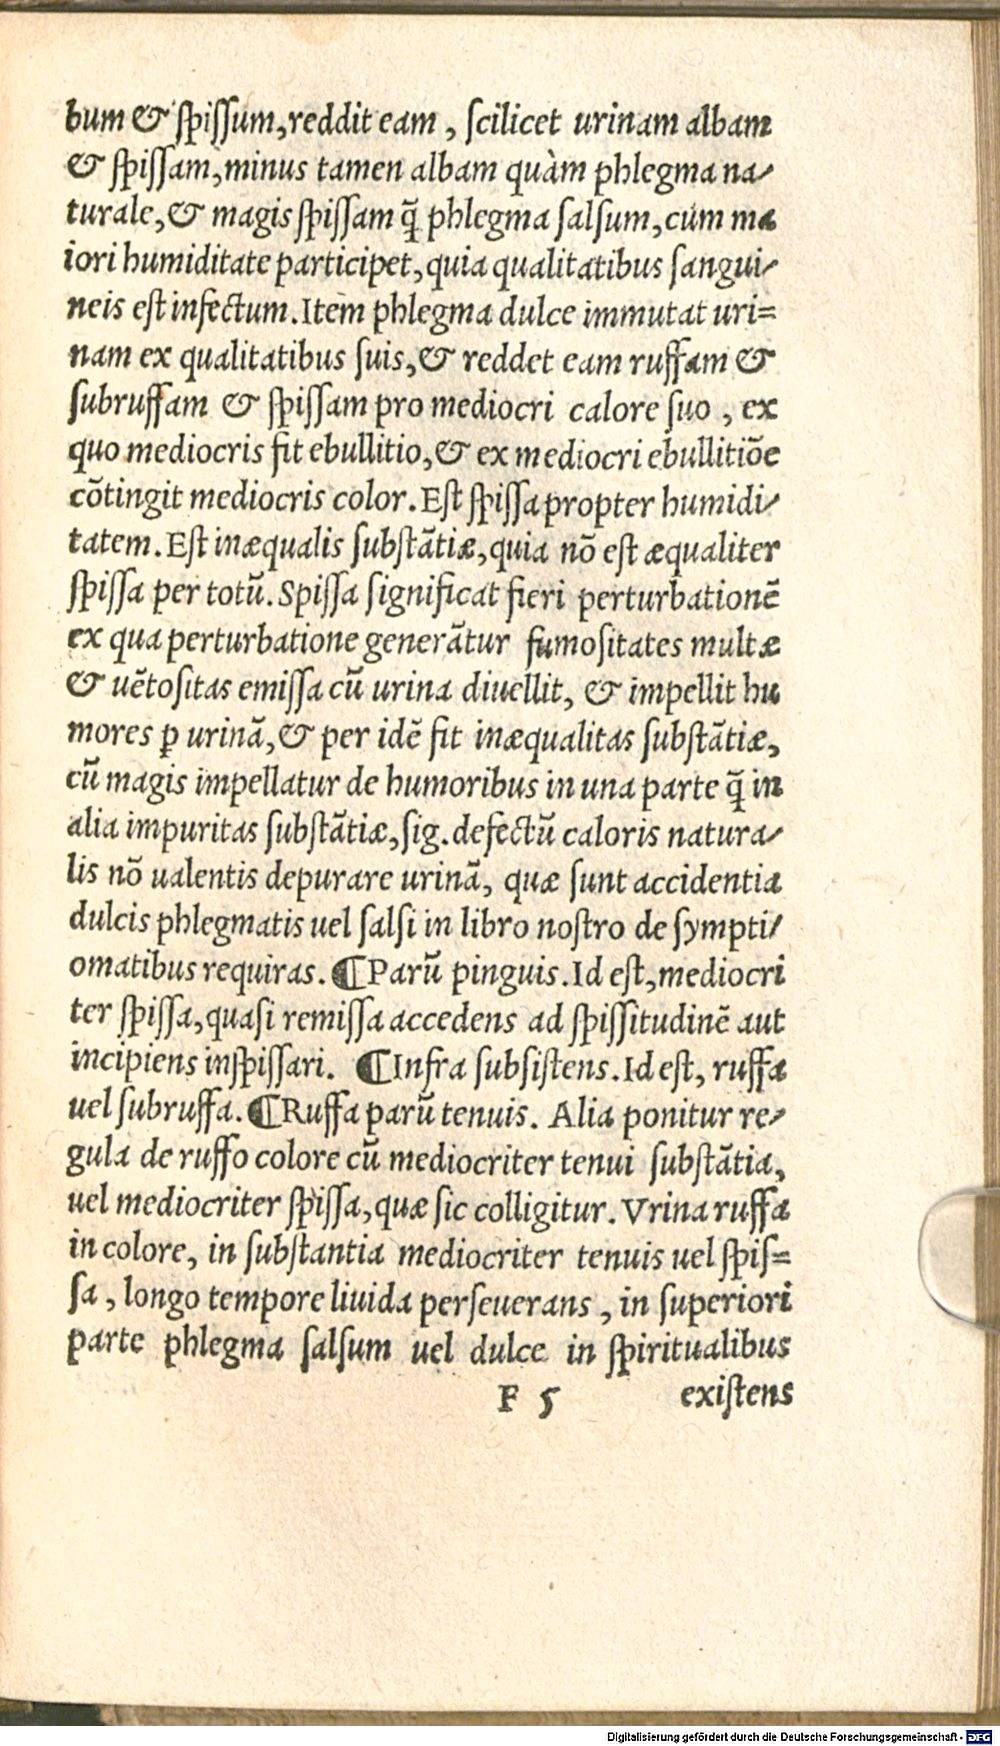 bum & ſpiſſum, reddit eam, ſcilicet urinam albam
& ſpiſſam, minus tamen albam quàm phlegma na-
turale, & magis ſpiſſam q̃ phlegma ſalſum, cùm ma
iori humiditate participet, quia qualitatibus ſangui-
neis eſt infectum. Item phlegma dulce immutat uri=
nam ex qualitatibus ſuis, & reddet eam ruffam &
ſubruffam & ſpiſſam pro mediocri calore ſuo, ex
quo mediocris fit ebullitio, & ex mediocri ebullitiõe
cõtingit mediocris color. Eſt ſpiſſa propter humidi-
tatem. Eſt inæqualis ſubſtãtiæ, quia nõ eſt æqualiter
ſpiſſa per totũ. Spiſſa ſignificat fieri perturbationẽ
ex qua perturbatione generãtur fumoſitates multæ
& uẽtoſitas emiſſa cũ urina diuellit, & impellit hu
mores ꝑ urinã, & per idẽ fit inæqualitas ſubſtãtiæ,
cũ magis impellatur de humoribus in una parte q̃ in
alia impuritas ſubſtãtiæ, ſig. defectũ caloris natura-
lis nõ ualentis depurare urinã, quæ ſunt accidentia
dulcis phlegmatis uel ſalſi in libro noſtro de ſympti-
omatibus requiras. ¶ Parũ pinguis. Id eſt, mediocri
ter ſpiſſa, quaſi remiſſa accedens ad ſpiſſitudinẽ aut
incipiens inſpiſſari. ¶ Infra ſubſiſtens. Id eſt, ruffa
uel ſubruffa. ¶ Ruffa parũ tenuis. Alia ponitur re-
gula de ruffo colore cũ mediocriter tenui ſubſtãtia,
uel mediocriter ſpiſſa, quæ ſic colligitur. Vrina ruffa
in colore, in ſubſtantia mediocriter tenuis uel ſpiſ=
ſa, longo tempore liuida perſeuerans, in ſuperiori
parte phlegma ſalſum uel dulce in ſpiritualibus
F 5 exiſtens
Digitalisierung gefördert durch die Deutsche Forschungsgemeinschaft - DFG